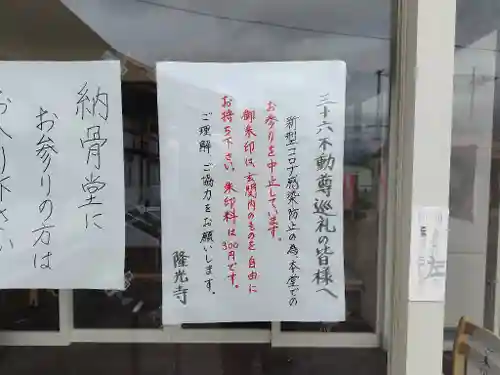 三十六不動尊巡礼の皆様へ
新型コロナ感染防止の為、本堂での
お参りを中止しています。
御朱印は、玄関内のものを自由に
お持ち下さい。朱印料は300円です。
ご理解、ご協力をお願いします。
隆光寺
納骨堂に
お参りの方は